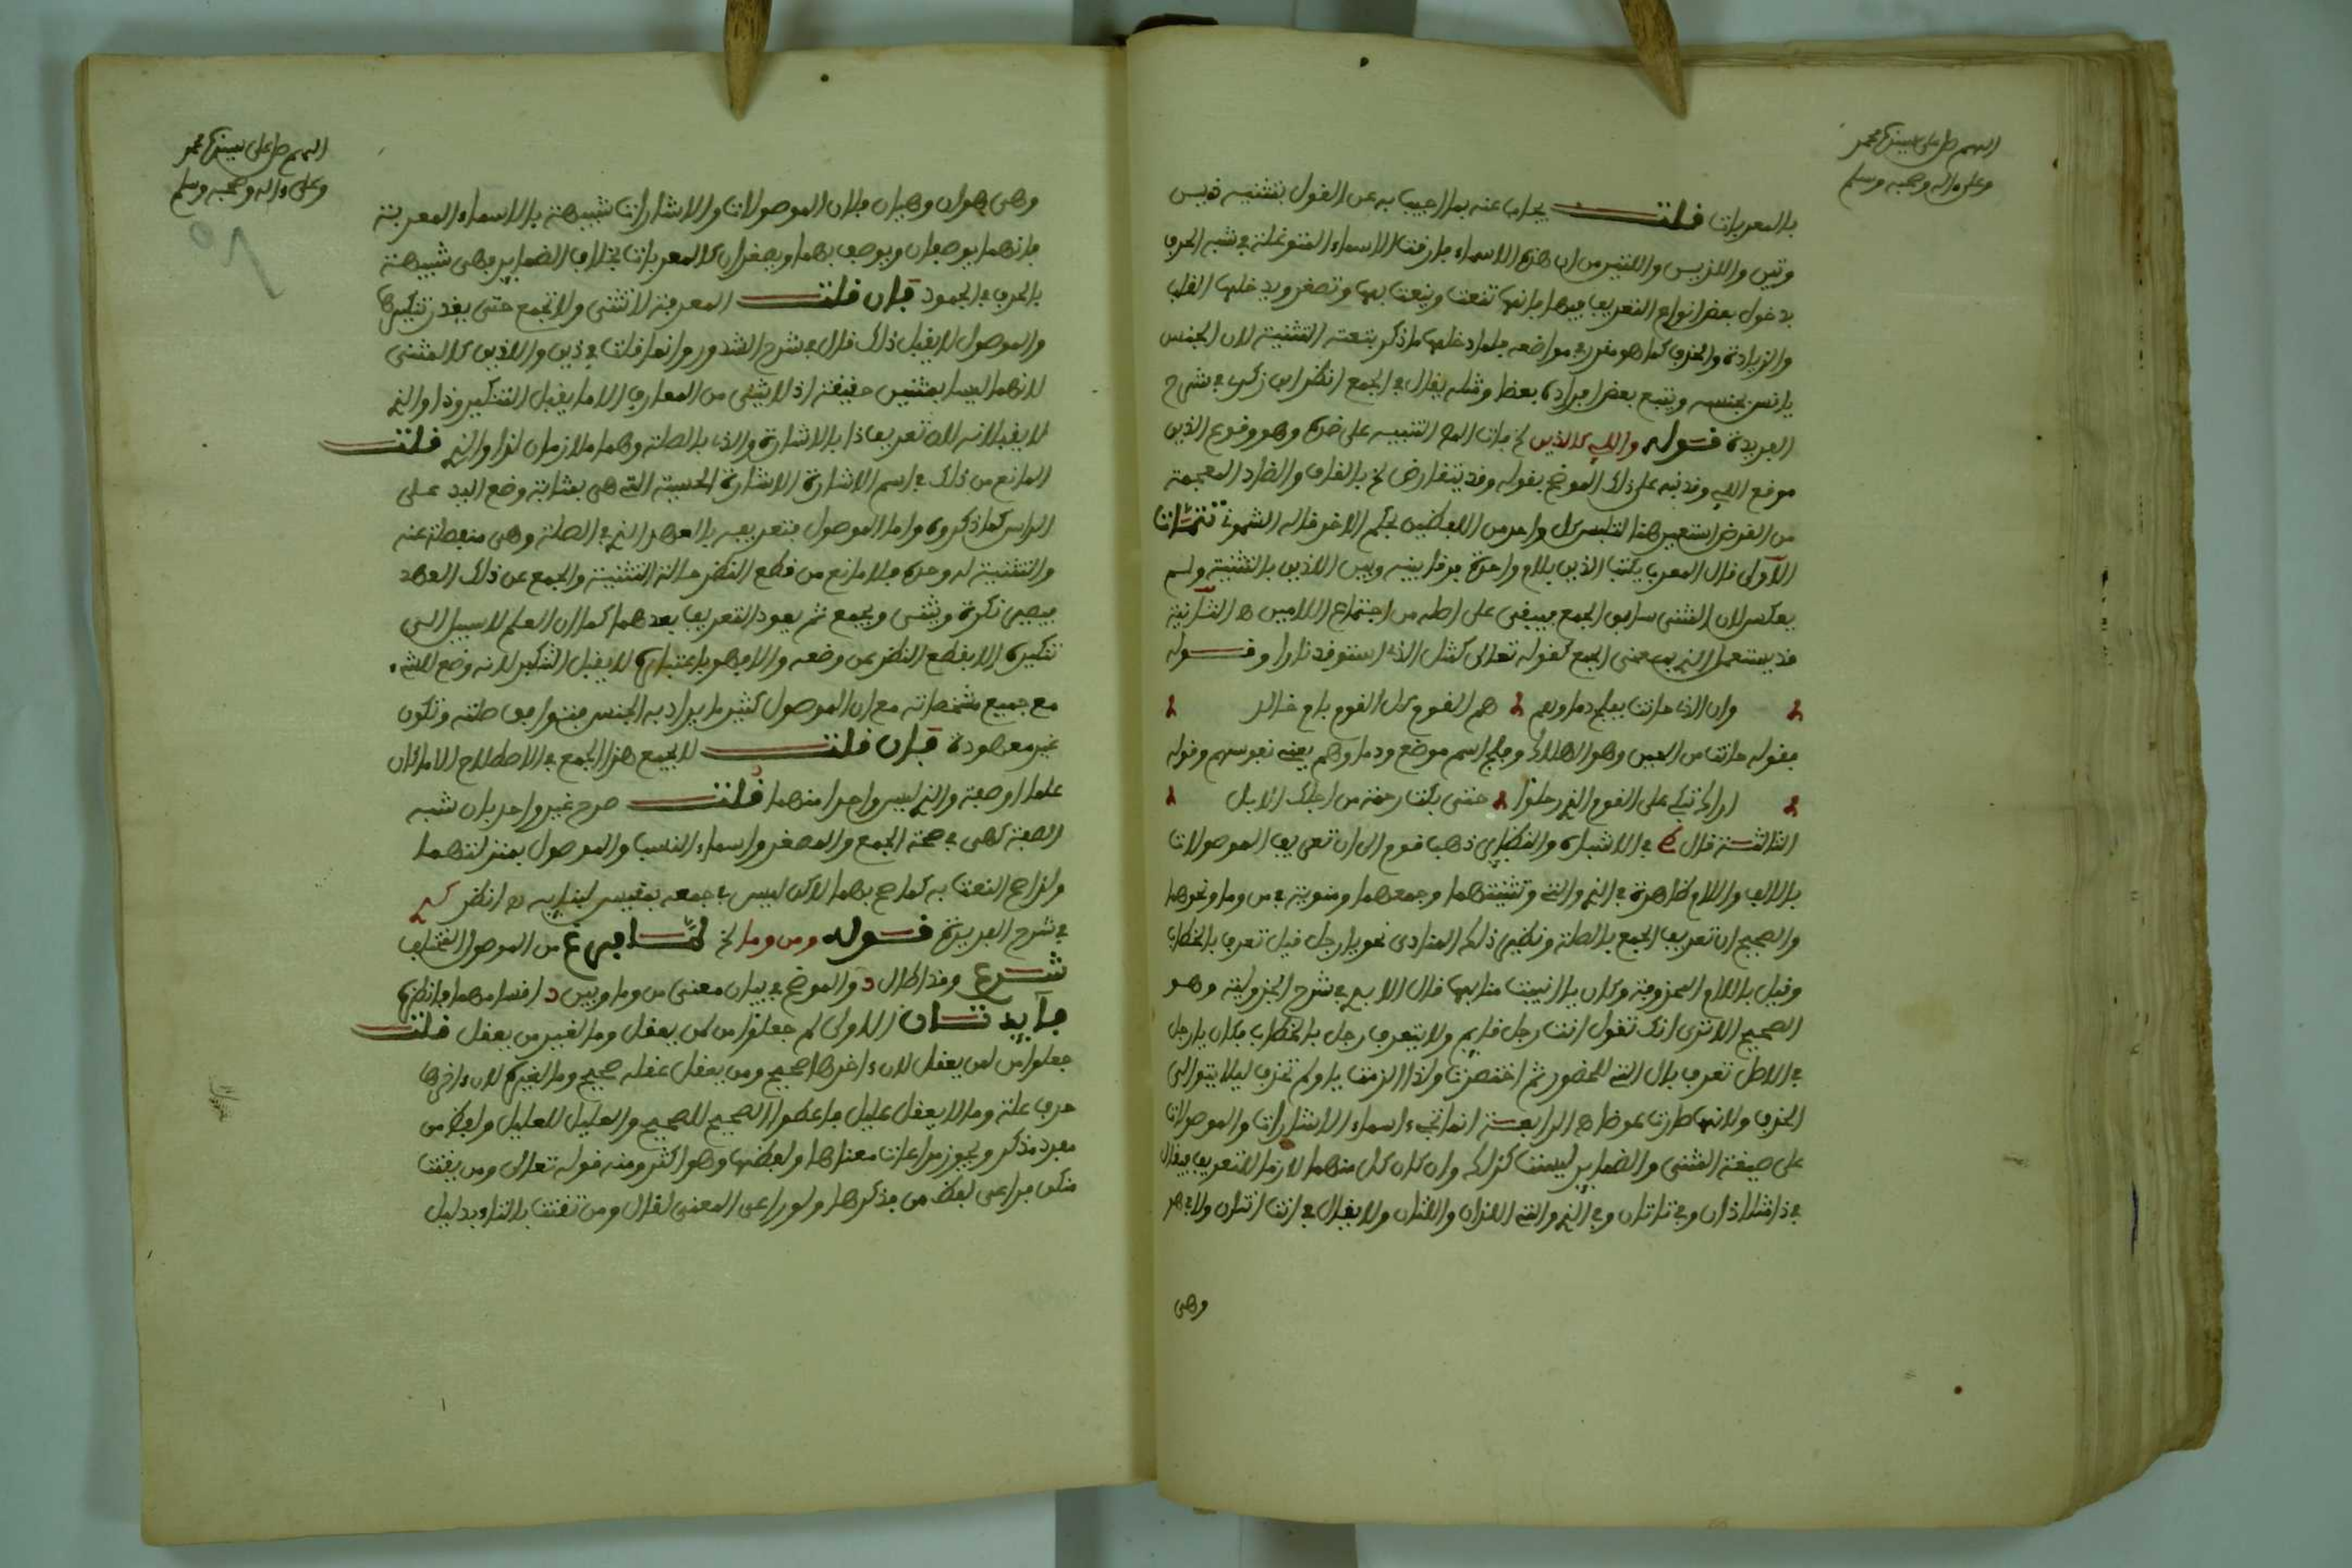 اللهم صل على نبينا محمد
وعلى ءاله وصحبه وسلم
بالمعربات قلت يجاب عنه بما اجيب به عن القول بتثنية ذين
وتين واللذين واللتين من ان هذه الاسماء فارقت الاسماء المتوغلة في شبه الحرف
بدخول بعض انواع التعريف فيها فانها تنعت وينعت بها وتصغر ويدخلها القلب
والزيادة والحذف كما هو مقرر في مواضعه فلما دخلها ما ذكر بتعته التثنية لان الجنس
يانس بجنسه ويتبع بعض افراده بعضا ومثله يقال في الجمع انظر ابن زكري في شرح
الفريدة قوله واللاء كالذين لخ فات المص التنبيه على ضده وهو وقوع الذين
موقع اللاء وقد نبه على ذلك الموضح بقوله وقد يتقارض لخ بالقاف والضاد المعجمة
من القرض استعير هنا لتلبس كل واحد من اللفظين بحكم الاخر قاله الشمني تتمات
الاولى قال المعرب يكتب الذين بلام واحدة فرقا بينه وبين اللذين بالتثنية ولم
يعكس لان المثنى سابق الجمع فيبقى على اصله من اجتماع اللامين ه الثانية
قد يستعمل الذي بمعنى الجمع كقوله تعالى كمثل الذي استوقد نارا وقوله
وان الذي حانت بفلج دماؤهم هم القوم كل القوم يا ام خالد
فقوله حانت من الحين وهو الهلاك وفلج اسم موضع ودماؤهم يعني نفوسهم وقوله
اراك تبكي على القوم الذي رحلوا حتى بكت رحمة من اجلك الابل
الثالثة قال في الاشباه والنظاير ذهب قوم الى ان تعريف الموصولات
بالالف واللام ظاهرة في الذي والتي وتثنيتهما وجمعهما ومنوية في من وما ونحوهما
والصحيح ان تعريف الجمع بالصلة ونظير ذلك المنادى نحو يا رجل قيل تعرف بالخطاب
وقيل باللام المحذوفة وكان يا انيبت منابها قال الابذي في شرح الجزولية وهو
الصحيح الا ترى انك تقول انت رجل قايم ولا يتعرف رجل بالخطاب فكان يا رجل
في الاصل تعرف بال التي للحضور ثم اختصرت ولذا الزمت يا ولم تحذف ليلا يتوالى
الحذف ولانها صارت عوضا ه الرابعة انما تجيء اسماء الاشارات والموصولات
على صيغة المثنى والضماير ليست كذلك وان كان كل منهما لازما للتعريف فيقال
في ذا مثلا ذان وفي تا تان وفي الذي والتي اللذان واللتان ولا يقال في انت انتان ولا في هو
وهي
اللهم صل على نبينا محمد
وعلى ءاله وصحبه وسلم
وهي هوان وهيان فلان الموصولات والاشارات شبيهة بالاسماء المعربة
فانهما يوصفان ويوصف بهما ويصغران كالمعربات بخلاف الضماير فهي شبيهة
بالحرف في الجمود فان قلت المعرفة لا تثنى ولا تجمع حتى يقدر تنكيرها
والموصول لا يقبل ذلك قال في شرح الشذور وانما قلت في ذين واللذين كالمثنى
لانهما ليسا بمثنيين حقيقة اذ لا يثنى من المعارف الا ما يقبل التنكير وذا والذي
لا يقبلانه لان تعريف ذا بالاشارة والذي بالصلة وهما ملازمان لذا والذي قلت
المانع من ذلك في اسم الاشارة الاشارة الحسية التي هي بمثابة وضع اليد على
الراس كما ذكروه واما الموصول فتعريفه بالعهد الذي في الصلة وهي منفصلة عنه
والتثنية له وحده فلا مانع من قطع النظر حالة التثنية والجمع عن ذلك العهد
فيصير نكرة ويثنى ويجمع ثم يعود التعريف بعدهما كما ان العلم لا سبيل الى
تنكيره الا بقطع النظر عن وضعه والا فهو باعتباره لا يقبل التنكير لانه وضع للشيء
مع جميع مشخصاته مع ان الموصول كثيرا ما يراد به الجنس فتتوافق صلته وتكون
غير معهودة فان قلت لا يجمع هذا الجمع في الاصطلاح الا ما كان
علما او صفة والذي ليس واحدا منهما قلت صرح غير واحد بان شبه
الصفة كهي في صحة الجمع والمصغر واسماء النسب والموصول بمنزلتهما
ولذا صح النعت به كما صح بهما لاكن ليس في جمعه بمقيس لبنايه ه انظر
في شرح الفريدة قوله ومن وما لخ لما فرغ من الموصول المختلف
شرع وقد اطال الموضح في بيان معنى من وما وبين اقسامهما فانظره
فايدتان الاولى لم جعلوا من لمن يعقل وما لغير من يعقل قلت
جعلوا من لمن يعقل لان ءاخرها صحيح ومن يعقل عقله صحيح وما لغيره لان ءاخرها
حرف علة وما لا يعقل عليل فاعطوا الصحيح للصحيح والعليل للعليل ولفظ من
مفرد مذكر ويجوز مراعات معناها ولفظها وهو اكثر ومنه قوله تعالى ومن يقنت
منكن فراعى لفظ من فذكرها ولو راعى المعنى لقال ومن تقنت بالتاء بدليل